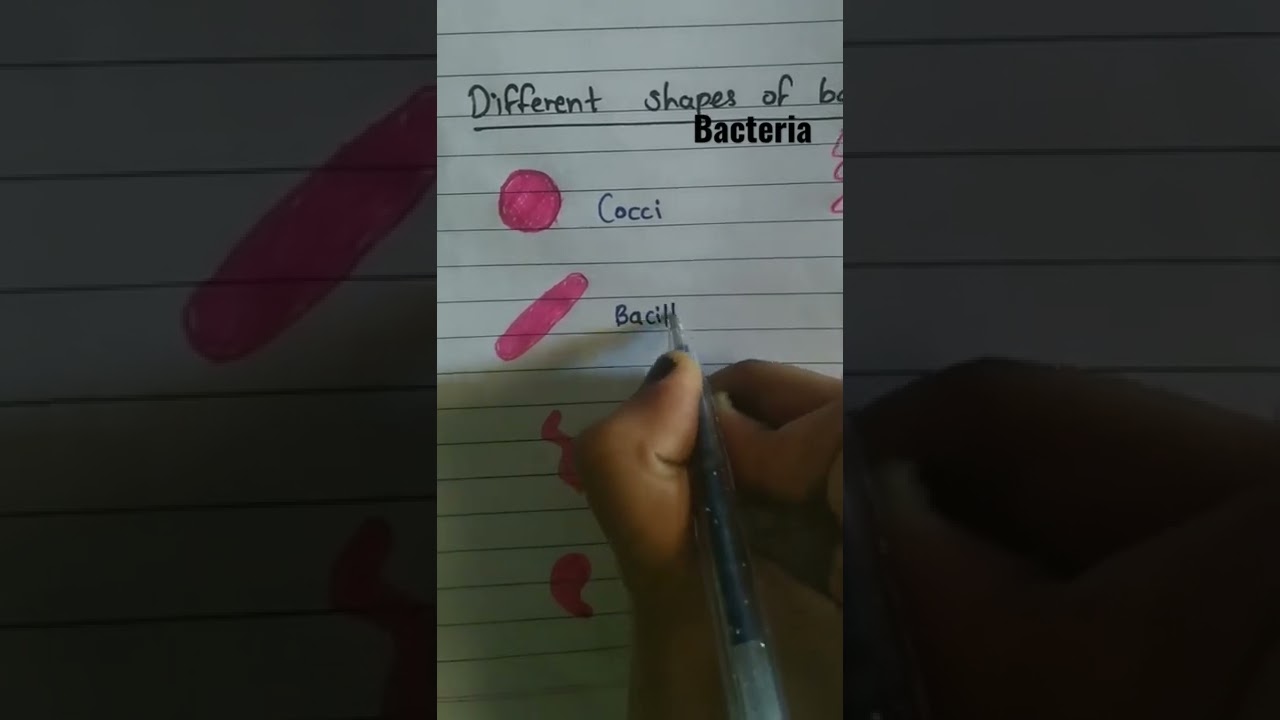 Different shapes of ba
Bacteria
Cocci
Bacill